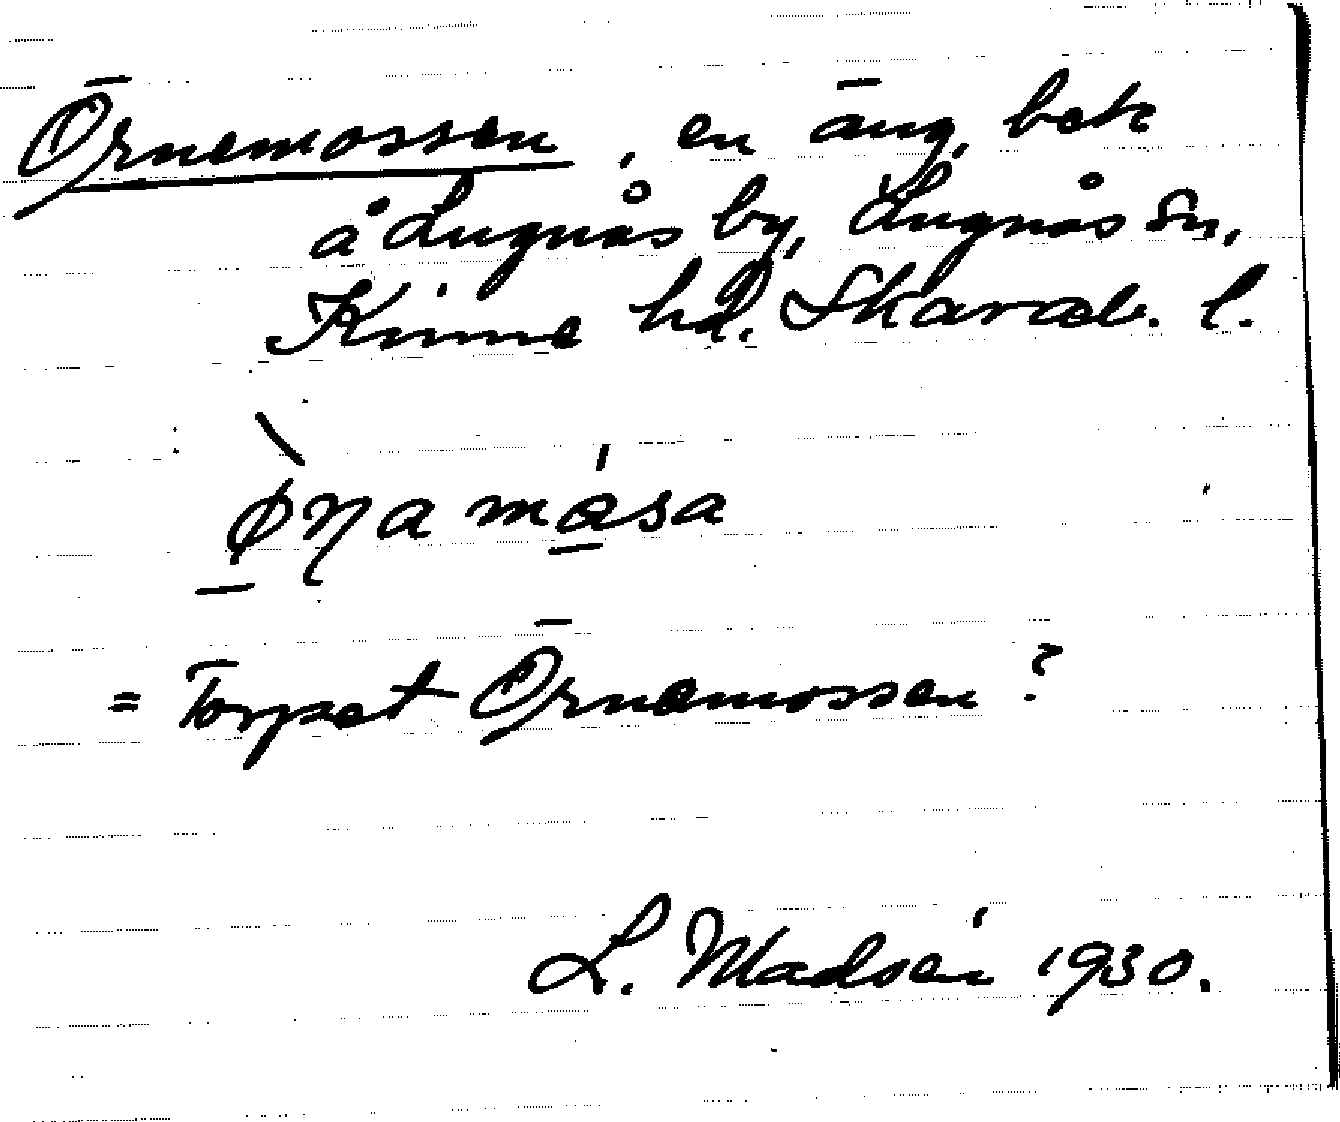 Örnemossen, en äng, bek
å Lugnås by, Lugnås sn,
Kinne hd. Skarab. l.
ø̀ꞃa mása
= Torpet Örnemossen?
L. Madsén 1930.